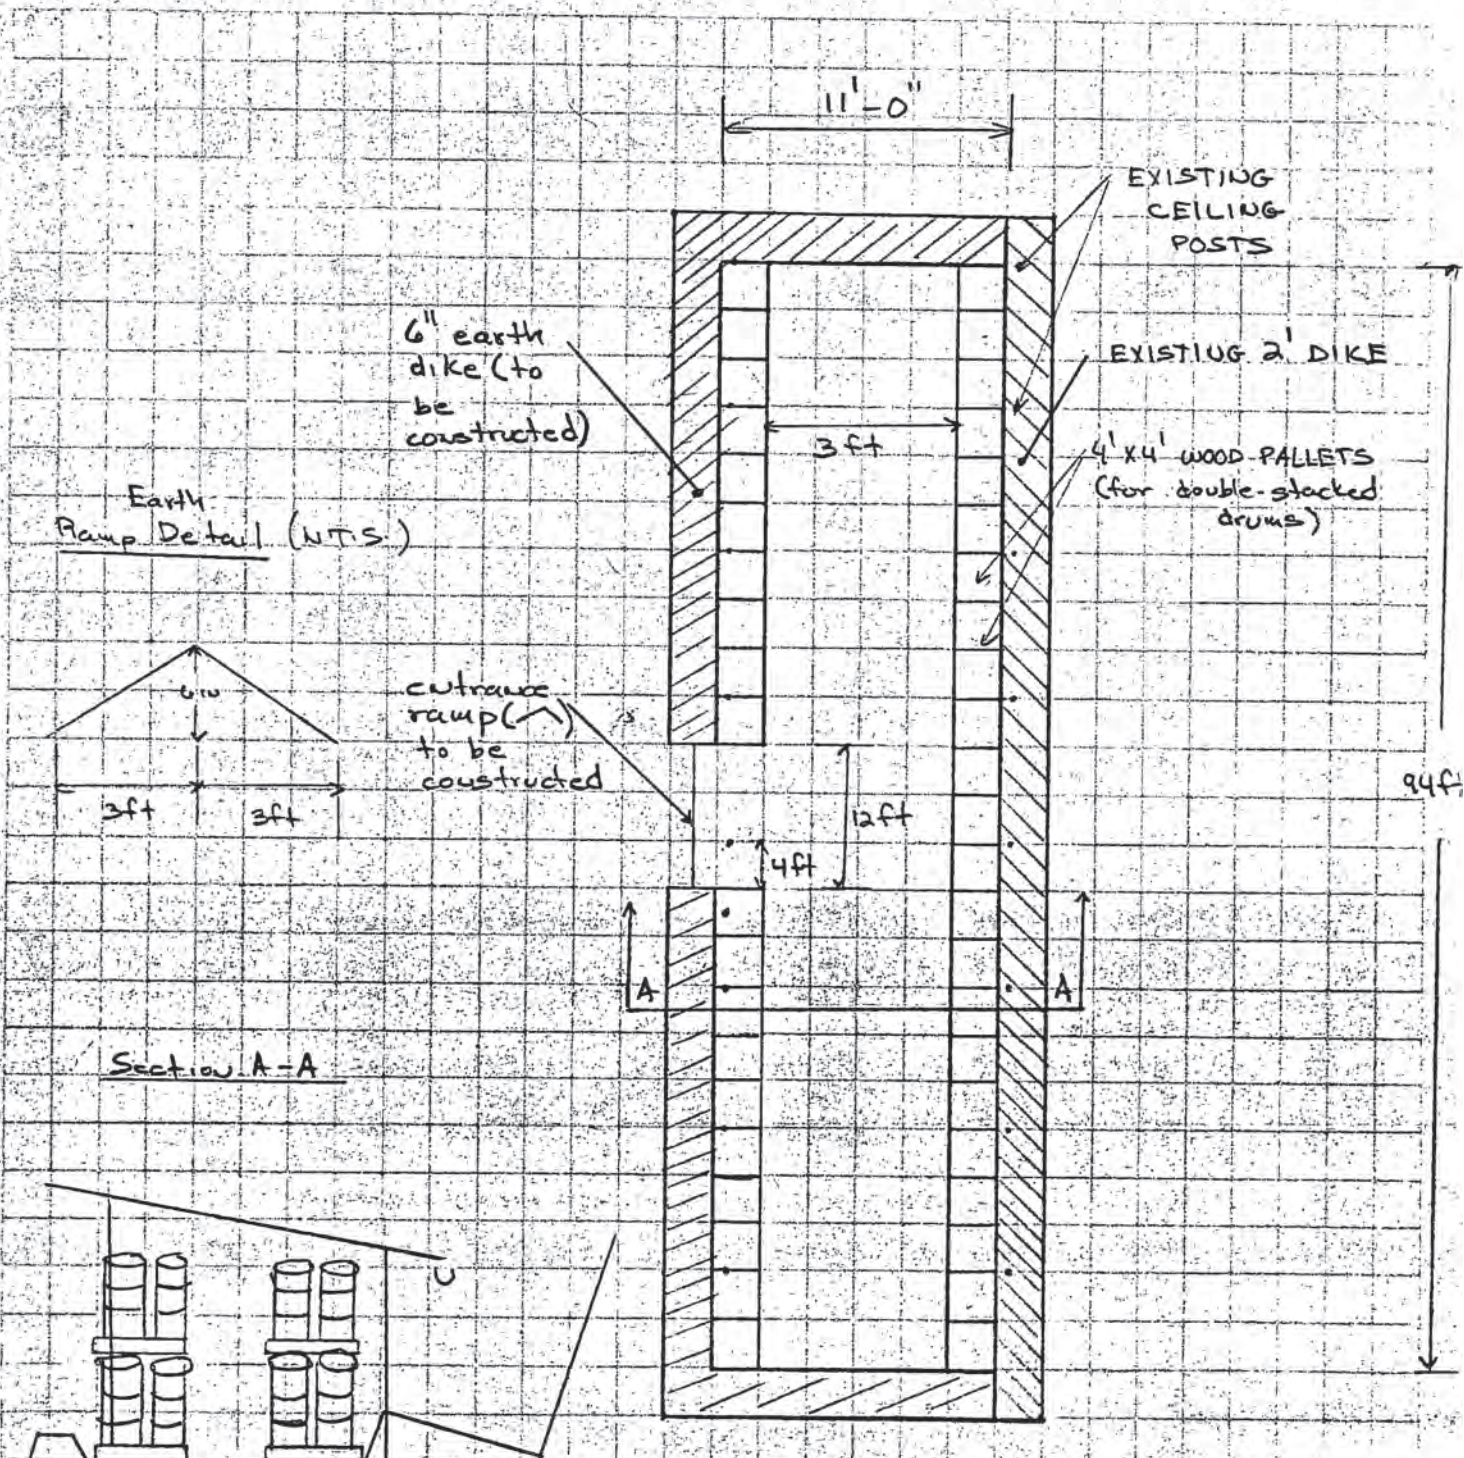 11'-0"
EXISTING
CEILING
POSTS
6" earth
dike (to
be
constructed)
EXISTING 2' DIKE
3 ft
4' X 4' WOOD PALLETS
(for double-stacked
drums)
Earth
Ramp Detail (NTS)
6 in
3ft
3ft
entrance
ramp( )
to be
constructed
12ft
4ft
94ft
A
A
Section A-A